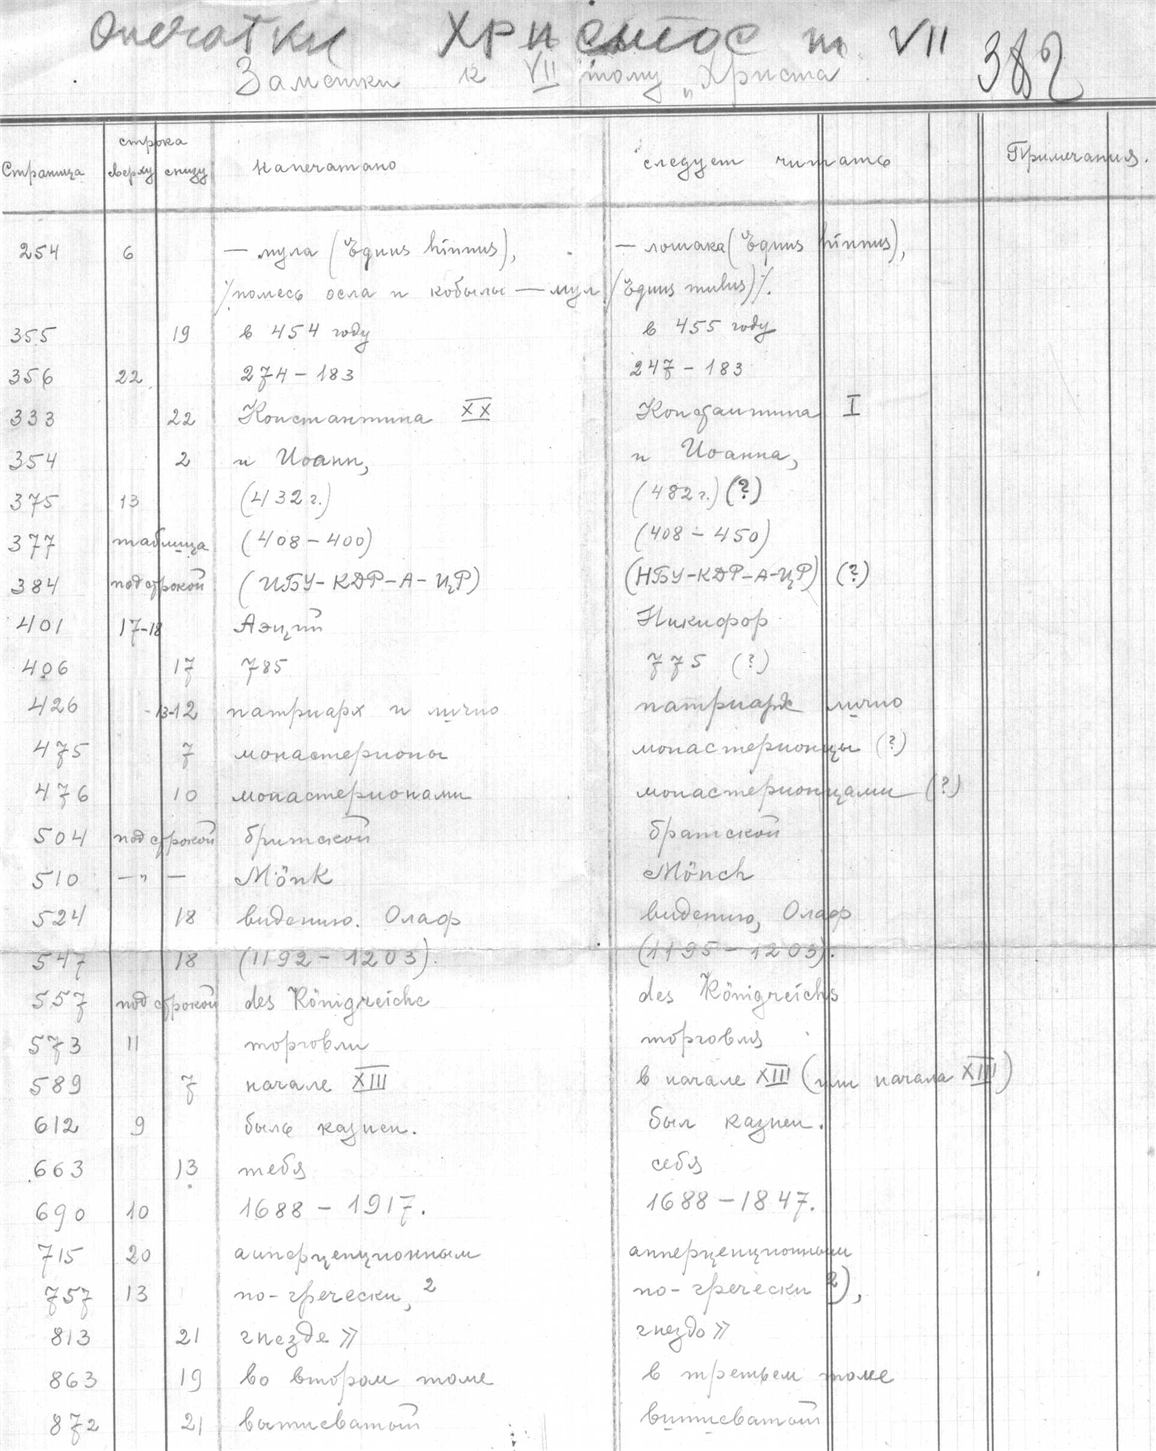 Опечатки Христос т. VII
382
Заметки к VII тому „Христа
строка
Страница сверху снизу напечатано следует читать Примечания.
254 6 — мула (Equus hinnus), — лошака (Equus hinnus),
/помесь осла и кобылы — мул (Equus mulus)/.
355 19 в 454 году в 455 году
356 22 274 - 183 247 - 183
333 22 Константина XX Константина I
354 2 и Иоанн, и Иоанна,
375 13 (432 г.) (482 г.) (?)
377 таблица (408 - 400) (408 - 450)
384 под строкой (ИБУ-КДР-А-ЦР) (НБУ-КДР-А-ЦР) (?)
401 17-18 Аэций Никифор
406 17 785 775 (?)
426 13-12 патриарх и лично патриарх лично
475 7 монастерионы монастерионцы (?)
476 10 монастерионами монастерионцами (?)
504 под строкой бритской братской
510 — " — Mönk Mönch
524 18 видению. Олаф видению, Олаф
547 18 (1192 - 1203). (1195 - 1203).
557 под строкой des Königreiche des Königreichs
573 11 торговли торговля
589 7 начале XIII в начале XIII (или начала XIII)
612 9 быль казнен. был казнен.
663 13 тебя себя
690 10 1688 - 1917. 1688 - 1847.
715 20 аиперцепционным апперцепционным
757 13 по-гречески, 2 по-гречески 2),
813 21 гнезде» гнездо»
863 19 во втором томе в третьем томе
872 21 вытиеватой витиеватой